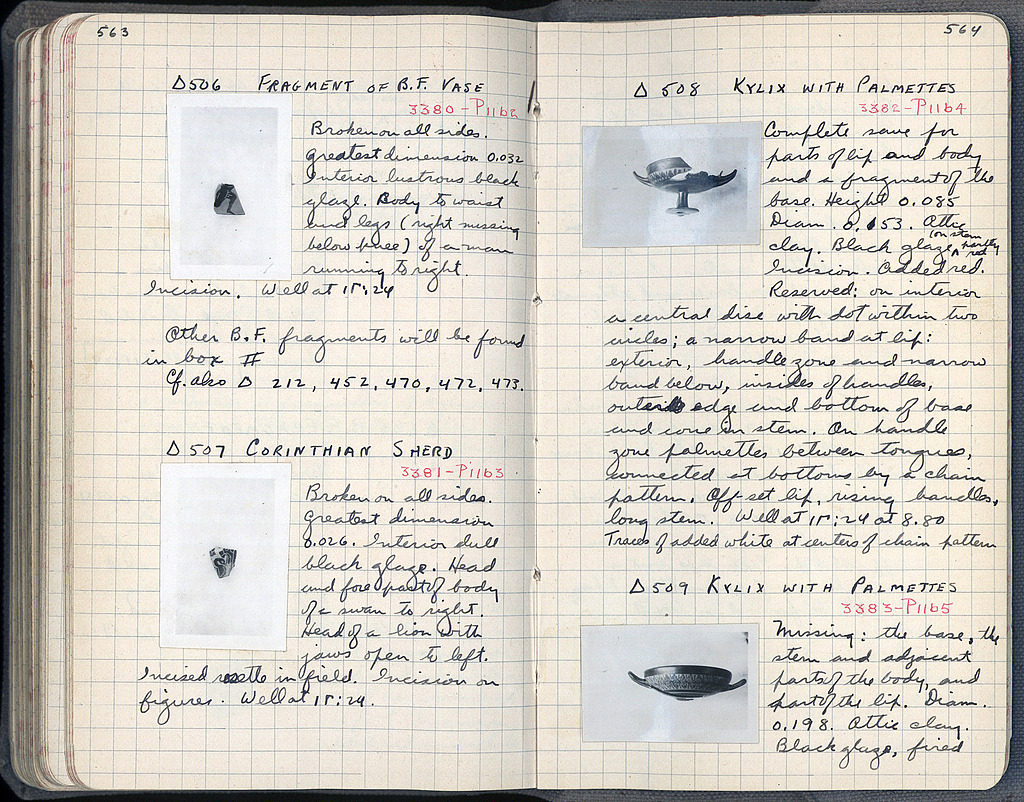 563
Δ506 FRAGMENT OF B.F. VASE
3380-P1162
Broken on all sides.
Greatest dimension 0.032
Interior lustrous black
glaze. Body to waist
and legs (right missing
below knee) of a man
running to right.
Incision. Well at ΙΓ:24
Other B.F. fragments will be found
in box #
Cf. also Δ 212, 452, 470, 472, 473.
Δ507 CORINTHIAN SHERD
3381-P1163
Broken on all sides.
Greatest dimension
0.026. Interior dull
black glaze. Head
and fore part of body
of a swan to right.
Head of a lion with
jaws open to left.
Incised rosette in field. Incision on
figures. Well at ΙΓ:24.
564
Δ 508 KYLIX WITH PALMETTES
3382-P1164
Complete save for
parts of lip and body
and a fragment of the
base. Height 0.085
Diam. 0.153. Attic
clay. Black glaze, (on stem partly red
Incision. Added red.
Reserved: on interior
a central disc with dot within two
circles; a narrow band at lip:
exterior, handle zone and narrow
band below, insides of handles,
outside edge and bottom of base
and cone in stem. On handle
zone palmettes between tongues,
connected at bottoms by a chain
pattern. Off-set lip, rising handles,
long stem. Well at ΙΓ:24 at 8.80
Traces of added white at centers of chain pattern
Δ509 KYLIX WITH PALMETTES
3383-P1165
Missing: the base, the
stem and adjacent
parts of the body, and
part of the lip. Diam.
0.198. Attic clay.
Black glaze, fired